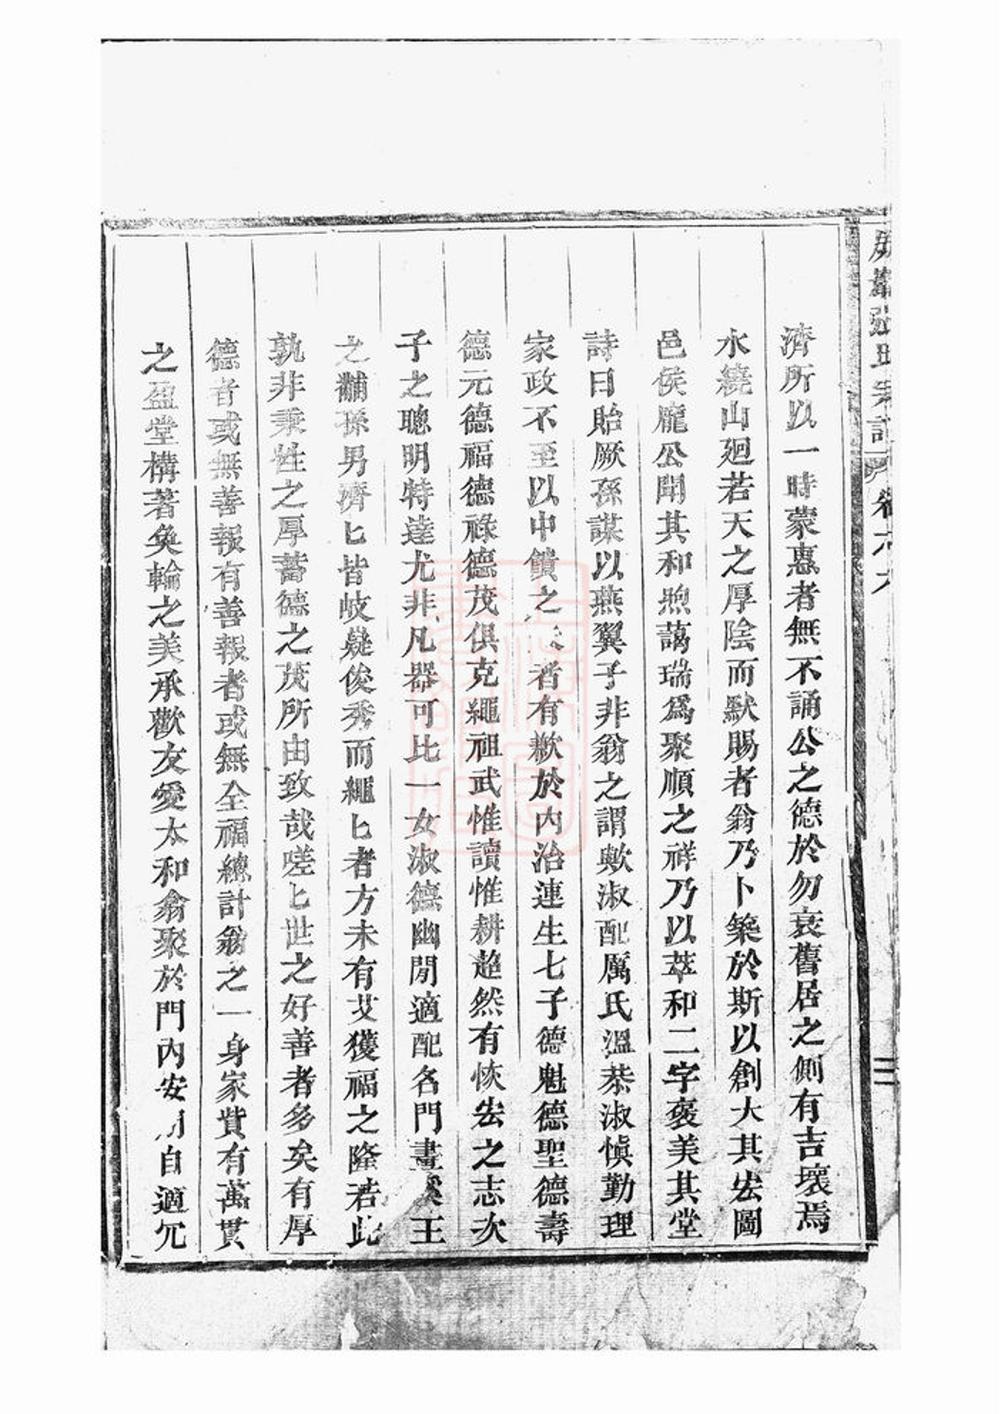 濟所以一時蒙惠者無不誦公之德於勿衰舊居之側有吉壤焉
水繞山廻若天之厚陰而默賜者翁乃卜築於斯以創大其宏圖
邑侯龐公聞其和煦藹瑞為聚順之祥乃以萃和二字褒美其堂
詩曰貽厥孫謀以燕翼子非翁之謂歟淑配厲氏溫恭淑慎勤理
家政不至以中饋之 者有歉於內治連生七子德魁德聖德壽
德元德福德祿德茂俱克繩祖武惟讀惟耕趨然有恢宏之志次
子之聰明特達尤非凡器可比一女淑德幽閒適配名門畫溪王
之黼孫男濟匕皆岐嶷俊秀而繩匕者方未有艾獲福之隆若此
孰非秉性之厚蓄德之茂所由致哉嗟匕世之好善者多矣有厚
德者或無善報有善報者或無全福總計翁之一身家貲有萬貫
之盈堂構著奐輪之美承歡友愛太和翕聚於門內安 自適冗